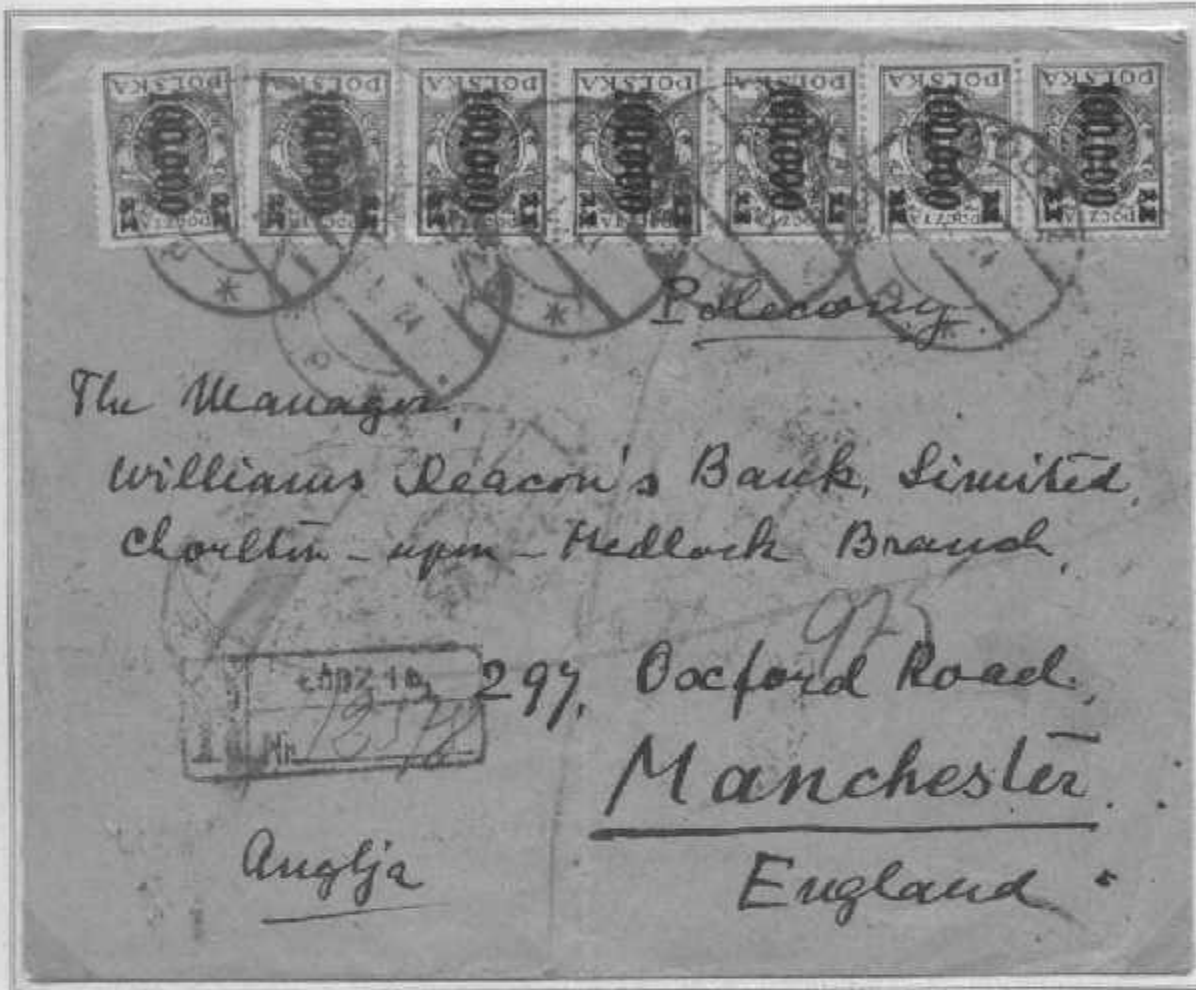 POLSKA POLSKA POLSKA POLSKA POLSKA POLSKA POLSKA
Polecony.
The Manager,
Williams Deacon's Bank, Limited,
Chorlton-upon-Medlock Branch,
975
ŁÓDŹ
297, Oxford Road,
Nr
Manchester.
Anglja
England